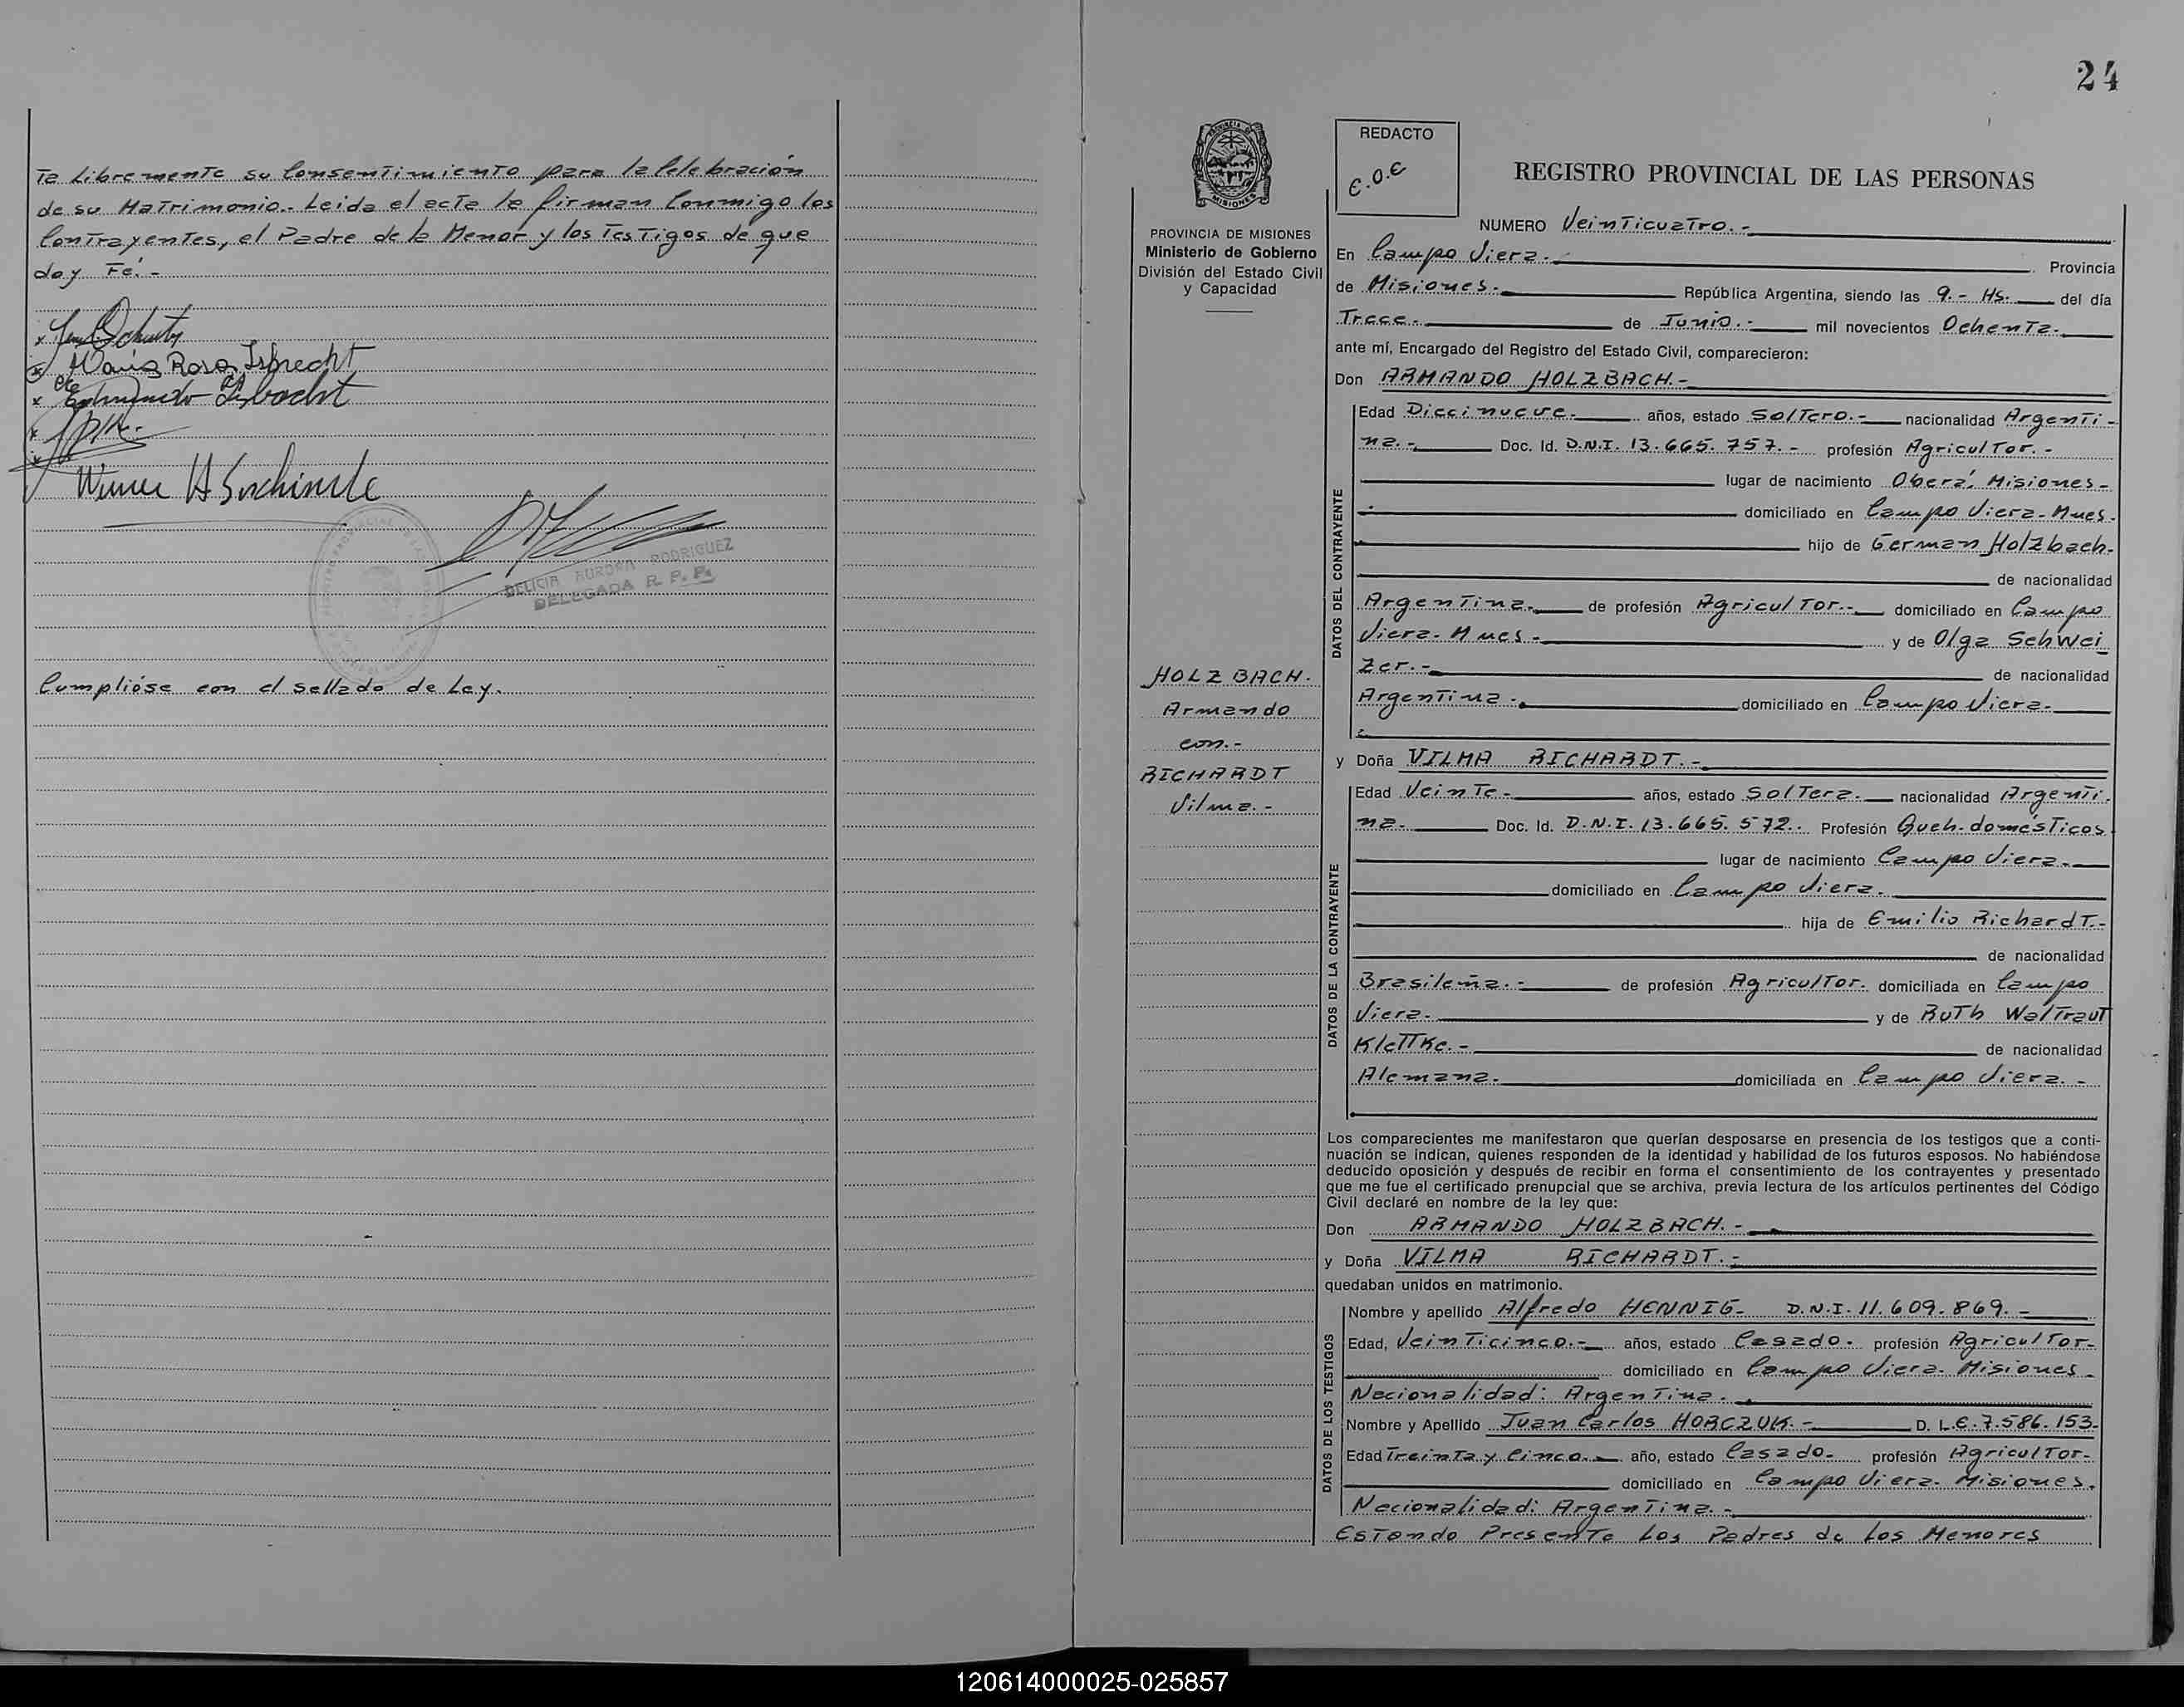 Te Libremente su Consentimiento para la Celebración
de su Matrimonio.- Leida el acta la firman Conmigo los
Contrayentes, el Padre de la Menor y los Testigos de que
doy Fé.-
María Rosa Isbrecht
DELICIA AURORA RODRIGUEZ
DELEGADA R. P. P.
Cumplióse con el sellado de Ley.
24
PROVINCIA DE MISIONES
Ministerio de Gobierno
División del Estado Civil
y Capacidad
HOLZBACH.
Armando
con.-
RICHARDT
Vilma.-
REDACTO
C.O.E
REGISTRO PROVINCIAL DE LAS PERSONAS
NUMERO Veinticuatro.-
En Campo Viera.- Provincia
de Misiones.- República Argentina, siendo las 9.- Hs. del día
Trece.- de Junio.- mil novecientos Ochenta.-
ante mí, Encargado del Registro del Estado Civil, comparecieron:
Don ARMANDO HOLZBACH.-
DATOS DEL CONTRAYENTE
Edad Diecinueve.- años, estado Soltero.- nacionalidad Argenti-
na.- Doc. Id. D.N.I. 13.665.757.- profesión Agricultor.-
lugar de nacimiento Oberá, Misiones-
domiciliado en Campo Viera-Mnes.
hijo de German Holzbach-
de nacionalidad
Argentina.- de profesión Agricultor.- domiciliado en Campo
Viera-Mnes.- y de Olga Schwei
zer.- de nacionalidad
Argentina.- domiciliado en Campo Viera.-
y Doña VILMA RICHARDT.-
DATOS DE LA CONTRAYENTE
Edad Veinte- años, estado Soltera.- nacionalidad Argenti.
na.- Doc. Id. D.N.I. 13.665.572.. Profesión Queh. domésticos
lugar de nacimiento Campo Viera.-
domiciliado en Campo Viera.
hija de Emilio Richardt.-
de nacionalidad
Brasileña.- de profesión Agricultor. domiciliada en Campo
Viera.- y de Ruth Waltraut
Klettke.- de nacionalidad
Alemana.- domiciliada en Campo Viera.-
Los comparecientes me manifestaron que querían desposarse en presencia de los testigos que a conti-
nuación se indican, quienes responden de la identidad y habilidad de los futuros esposos. No habiéndose
deducido oposición y después de recibir en forma el consentimiento de los contrayentes y presentado
que me fue el certificado prenupcial que se archiva, previa lectura de los artículos pertinentes del Código
Civil declaré en nombre de la ley que:
Don ARMANDO HOLZBACH.-
y Doña VILMA RICHARDT.-
quedaban unidos en matrimonio.
DATOS DE LOS TESTIGOS
Nombre y apellido Alfredo HENNIG- D.N.I. 11.609.869.-
Edad, Veinticinco.- años, estado Casado. profesión Agricultor-
domiciliado en Campo Viera- Misiones.
Nacionalidad: Argentina.-
Nombre y Apellido Juan Carlos HORCZUK.- D. L.E.7.586.153.
Edad Treinta y Cinco.- año, estado Casado- profesión Agricultor-
domiciliado en Campo Viera- Misiones.
Nacionalidad: Argentina.-
Estando Presente Los Padres de Los Menores
120614000025-025857